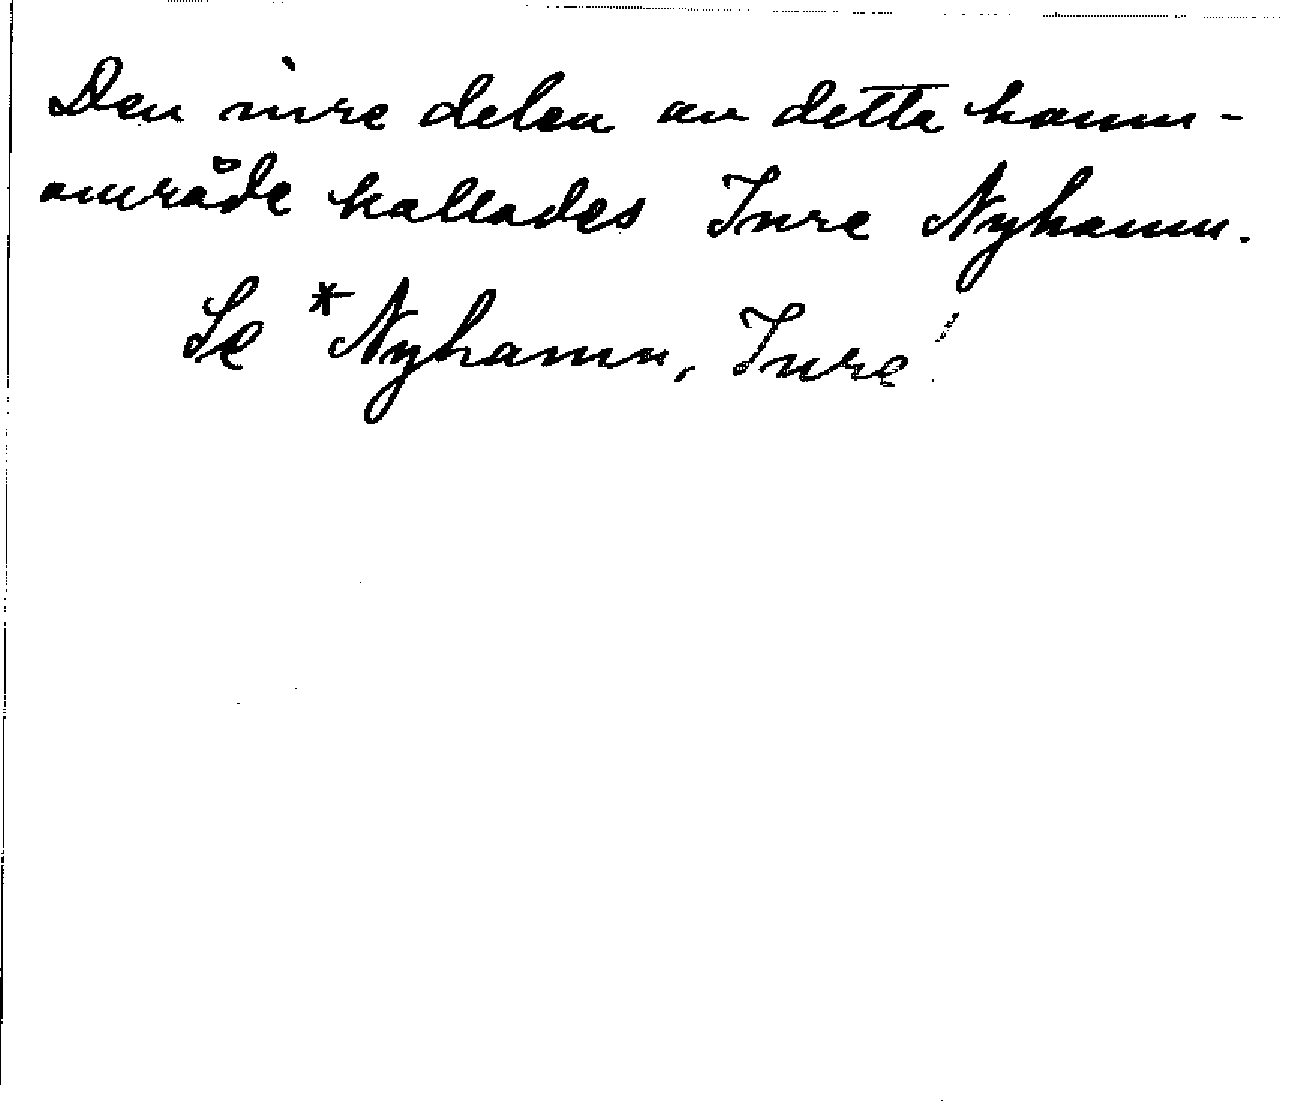 Den inre delen av detta hamn-
område kallades Inre Nyhamn.
Se *Nyhamn, Inre!